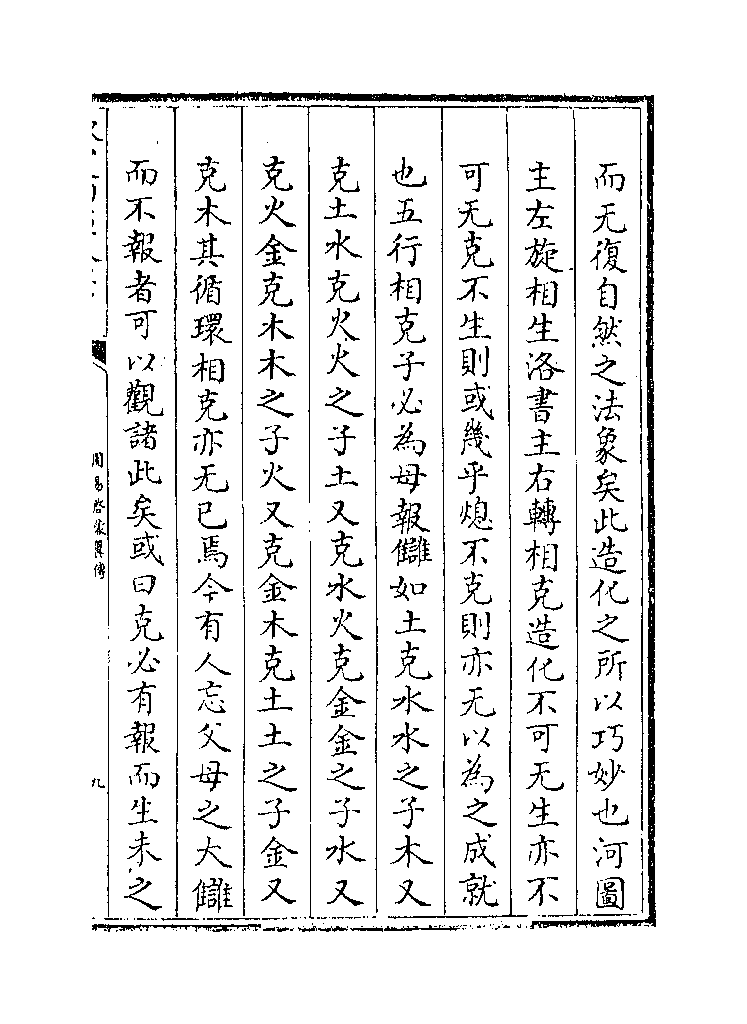 而无復自然之法象矣此造化之所以巧妙也河圖
主左旋相生洛書主右轉相克造化不可无生亦不
可无克不生則或幾乎熄不克則亦无以為之成就
也五行相克子必為母報讎如土克水水之子木又
克土水克火火之子土又克水火克金金之子水又
克火金克木木之子火又克金木克土土之子金又
克木其循環相克亦无已焉今有人忘父母之大讎
而不報者可以觀諸此矣或曰克必有報而生未之
周易啓蒙翼傳
九